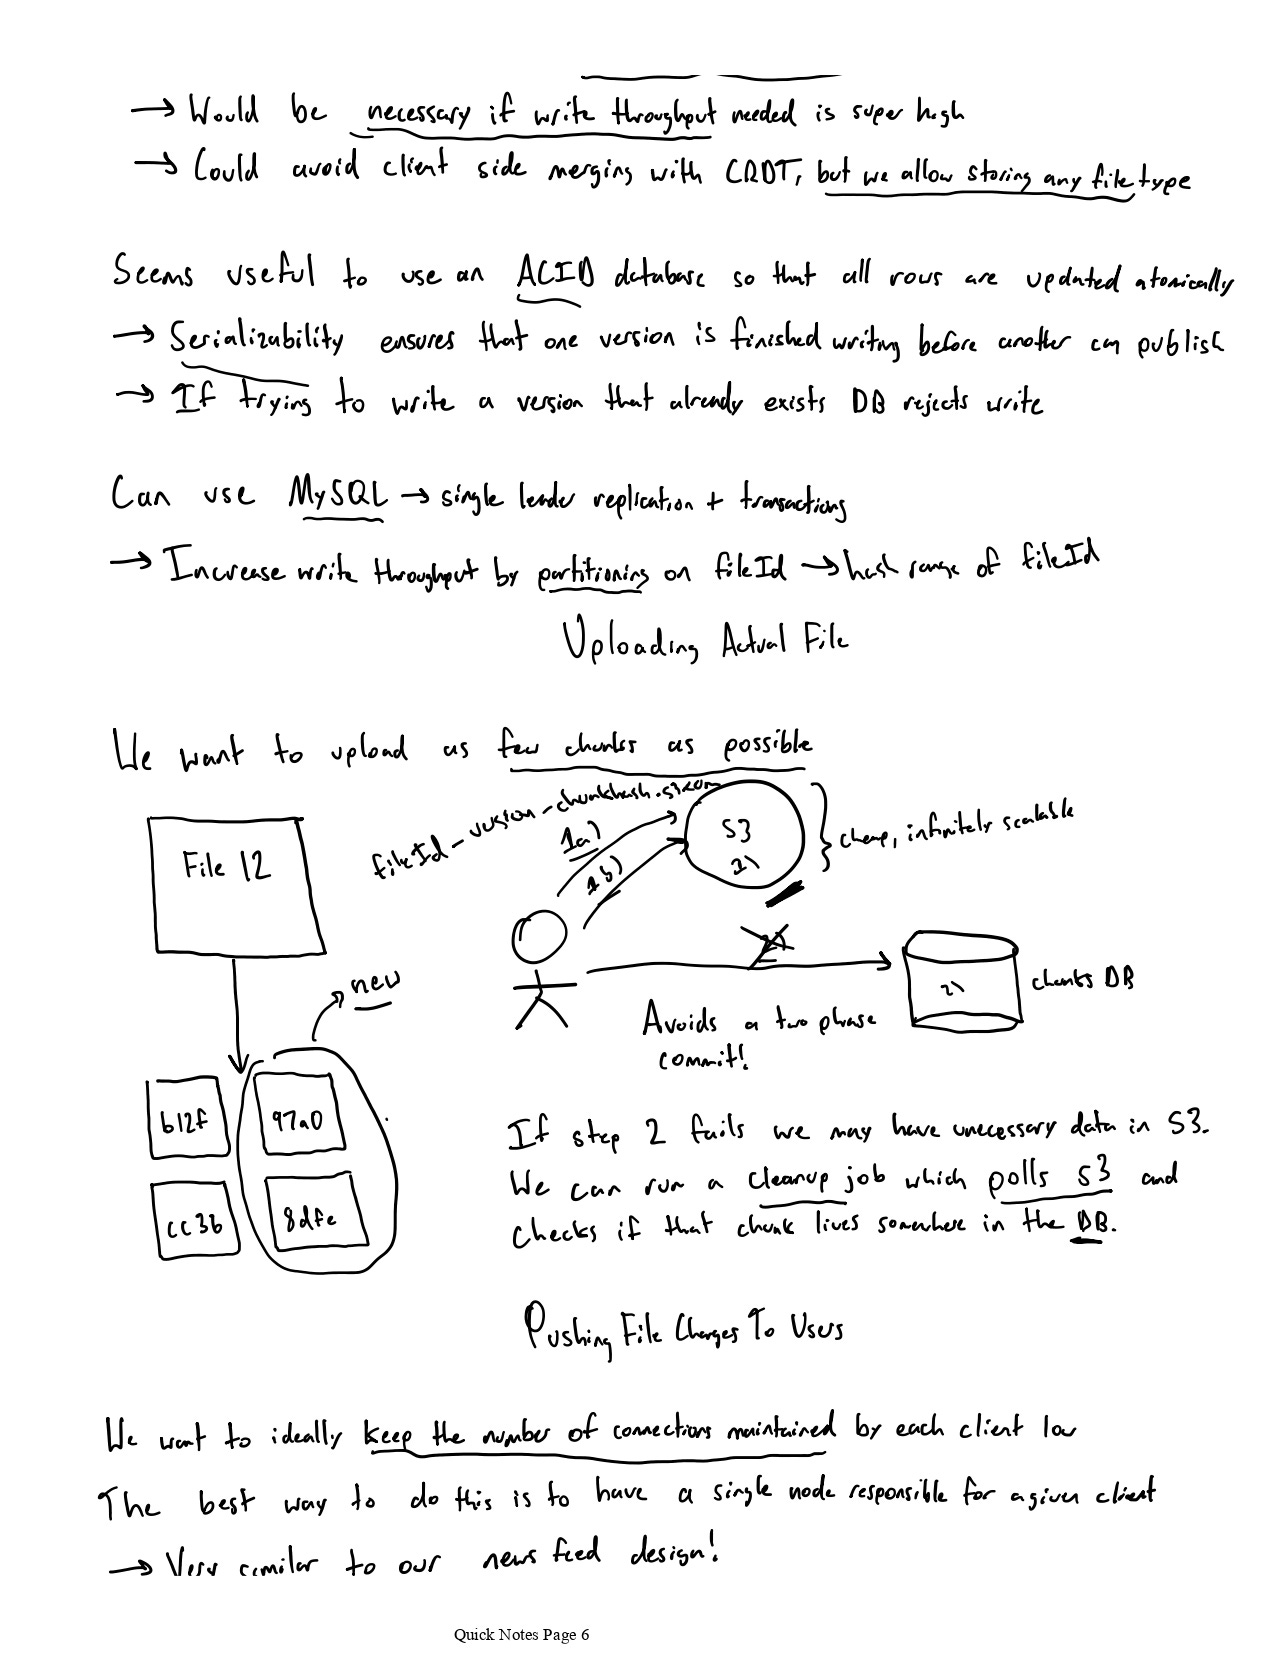 → Would be necessary if write throughput needed is super high
→ Could avoid client side merging with CRDT, but we allow storing any file type
Seems useful to use an ACID database so that all rows are updated atomically
→ Serializability ensures that one version is finished writing before another can publish
→ If trying to write a version that already exists DB rejects write
Can use MySQL → single leader replication + transactions
→ Increase write throughput by partitioning on fileId → hash range of fileId
Uploading Actual File
We want to upload as few chunks as possible
File 12
new
b12f
97a0
cc3b
8dfe
fileId-version-chunkhash.s3.com
1a)
1b)
S3
2)
} cheap, infinitely scalable
2)
chunks DB
Avoids a two phase
commit!
If step 2 fails we may have unecessary data in S3.
We can run a cleanup job which polls S3 and
checks if that chunk lives somewhere in the DB.
Pushing File Changes To Users
We want to ideally keep the number of connections maintained by each client low
The best way to do this is to have a single node responsible for a given client
→ Very similar to our news feed design!
Quick Notes Page 6